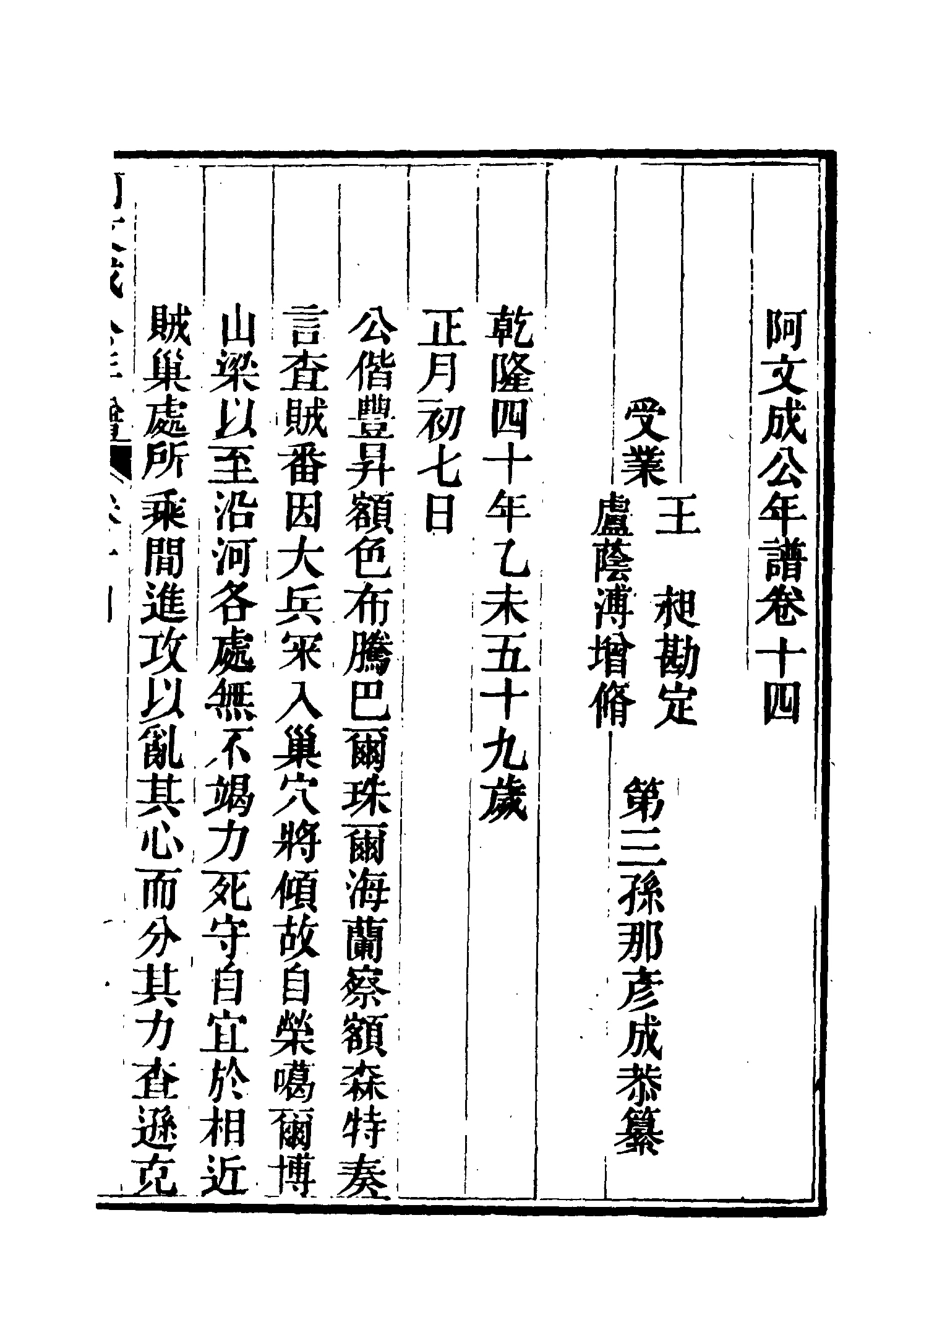 阿文成公年譜卷十四
第三孫那彥成恭纂
受業
王　昶勘定
盧蔭溥增脩
乾隆四十年乙未五十九歲
正月初七日
公偕豐昇額色布騰巴爾珠爾海蘭察額森特奏
言查賊番因大兵罙入巢穴將傾故自榮噶爾博
山梁以至沿河各處無不竭力死守自宜於相近
賊巢處所乘間進攻以亂其心而分其力查遜克
阿文成公年譜　卷十四